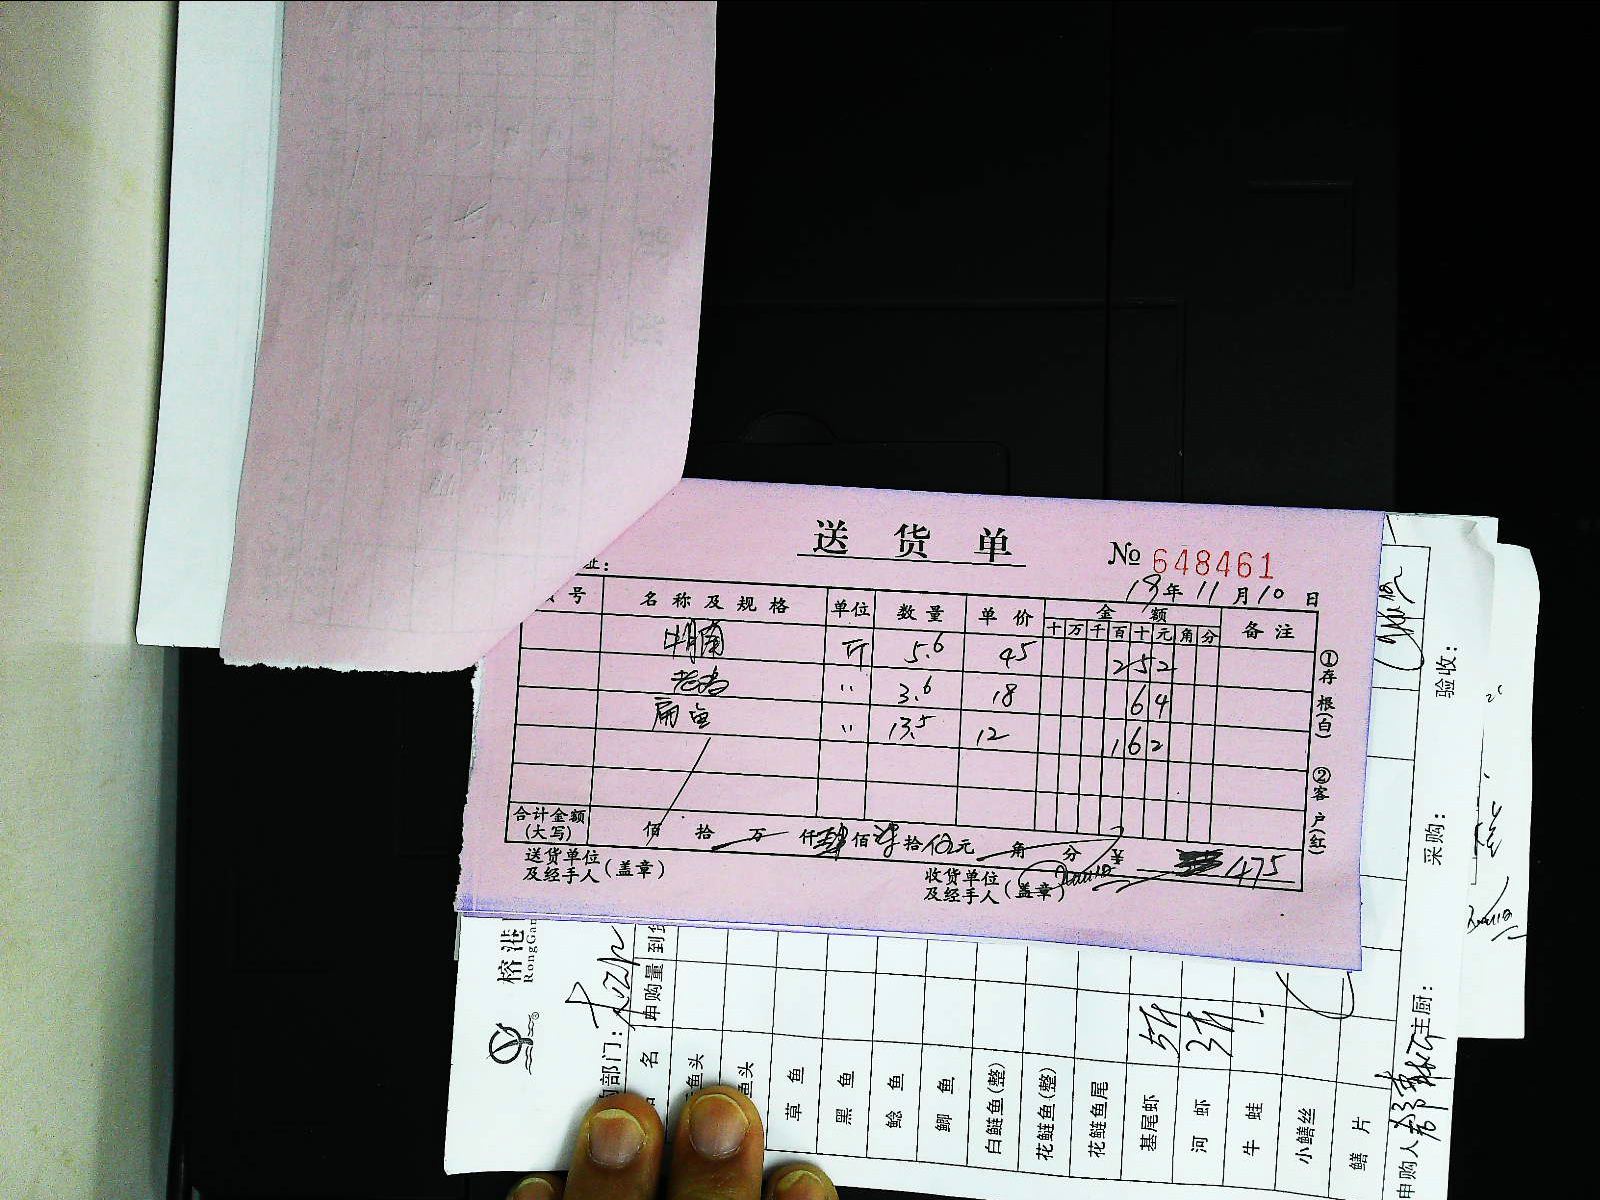 送 货 单
№ 648461
址：
19年 11月10日
号 名 称 及 规 格 单位 数 量 单 价 金 额 备 注
十 万 千 百 十 元 角 分
牛腩 斤 5.6 45 252
〃 3.6 18 64
扁鱼 〃 13.5 12 162
合计金额
(大写) 佰 拾 万 仟 肆 佰 柒 拾 伍 元 角 分 ¥ 475
送货单位
及经手人(盖章)
收货单位
及经手人(盖章)
①存根(白)
②客户(红)
榕港
RongGan
部门：
名 申购量 到货
鱼头
鱼头
草 鱼
黑 鱼
鲶 鱼
鲫 鱼
白鲢鱼(整)
花鲢鱼(整)
花鲢鱼尾
基尾虾 5斤
河 虾 3斤
牛 蛙
小鳝丝
鳝 片
申购人
主厨：
采购：
验收：